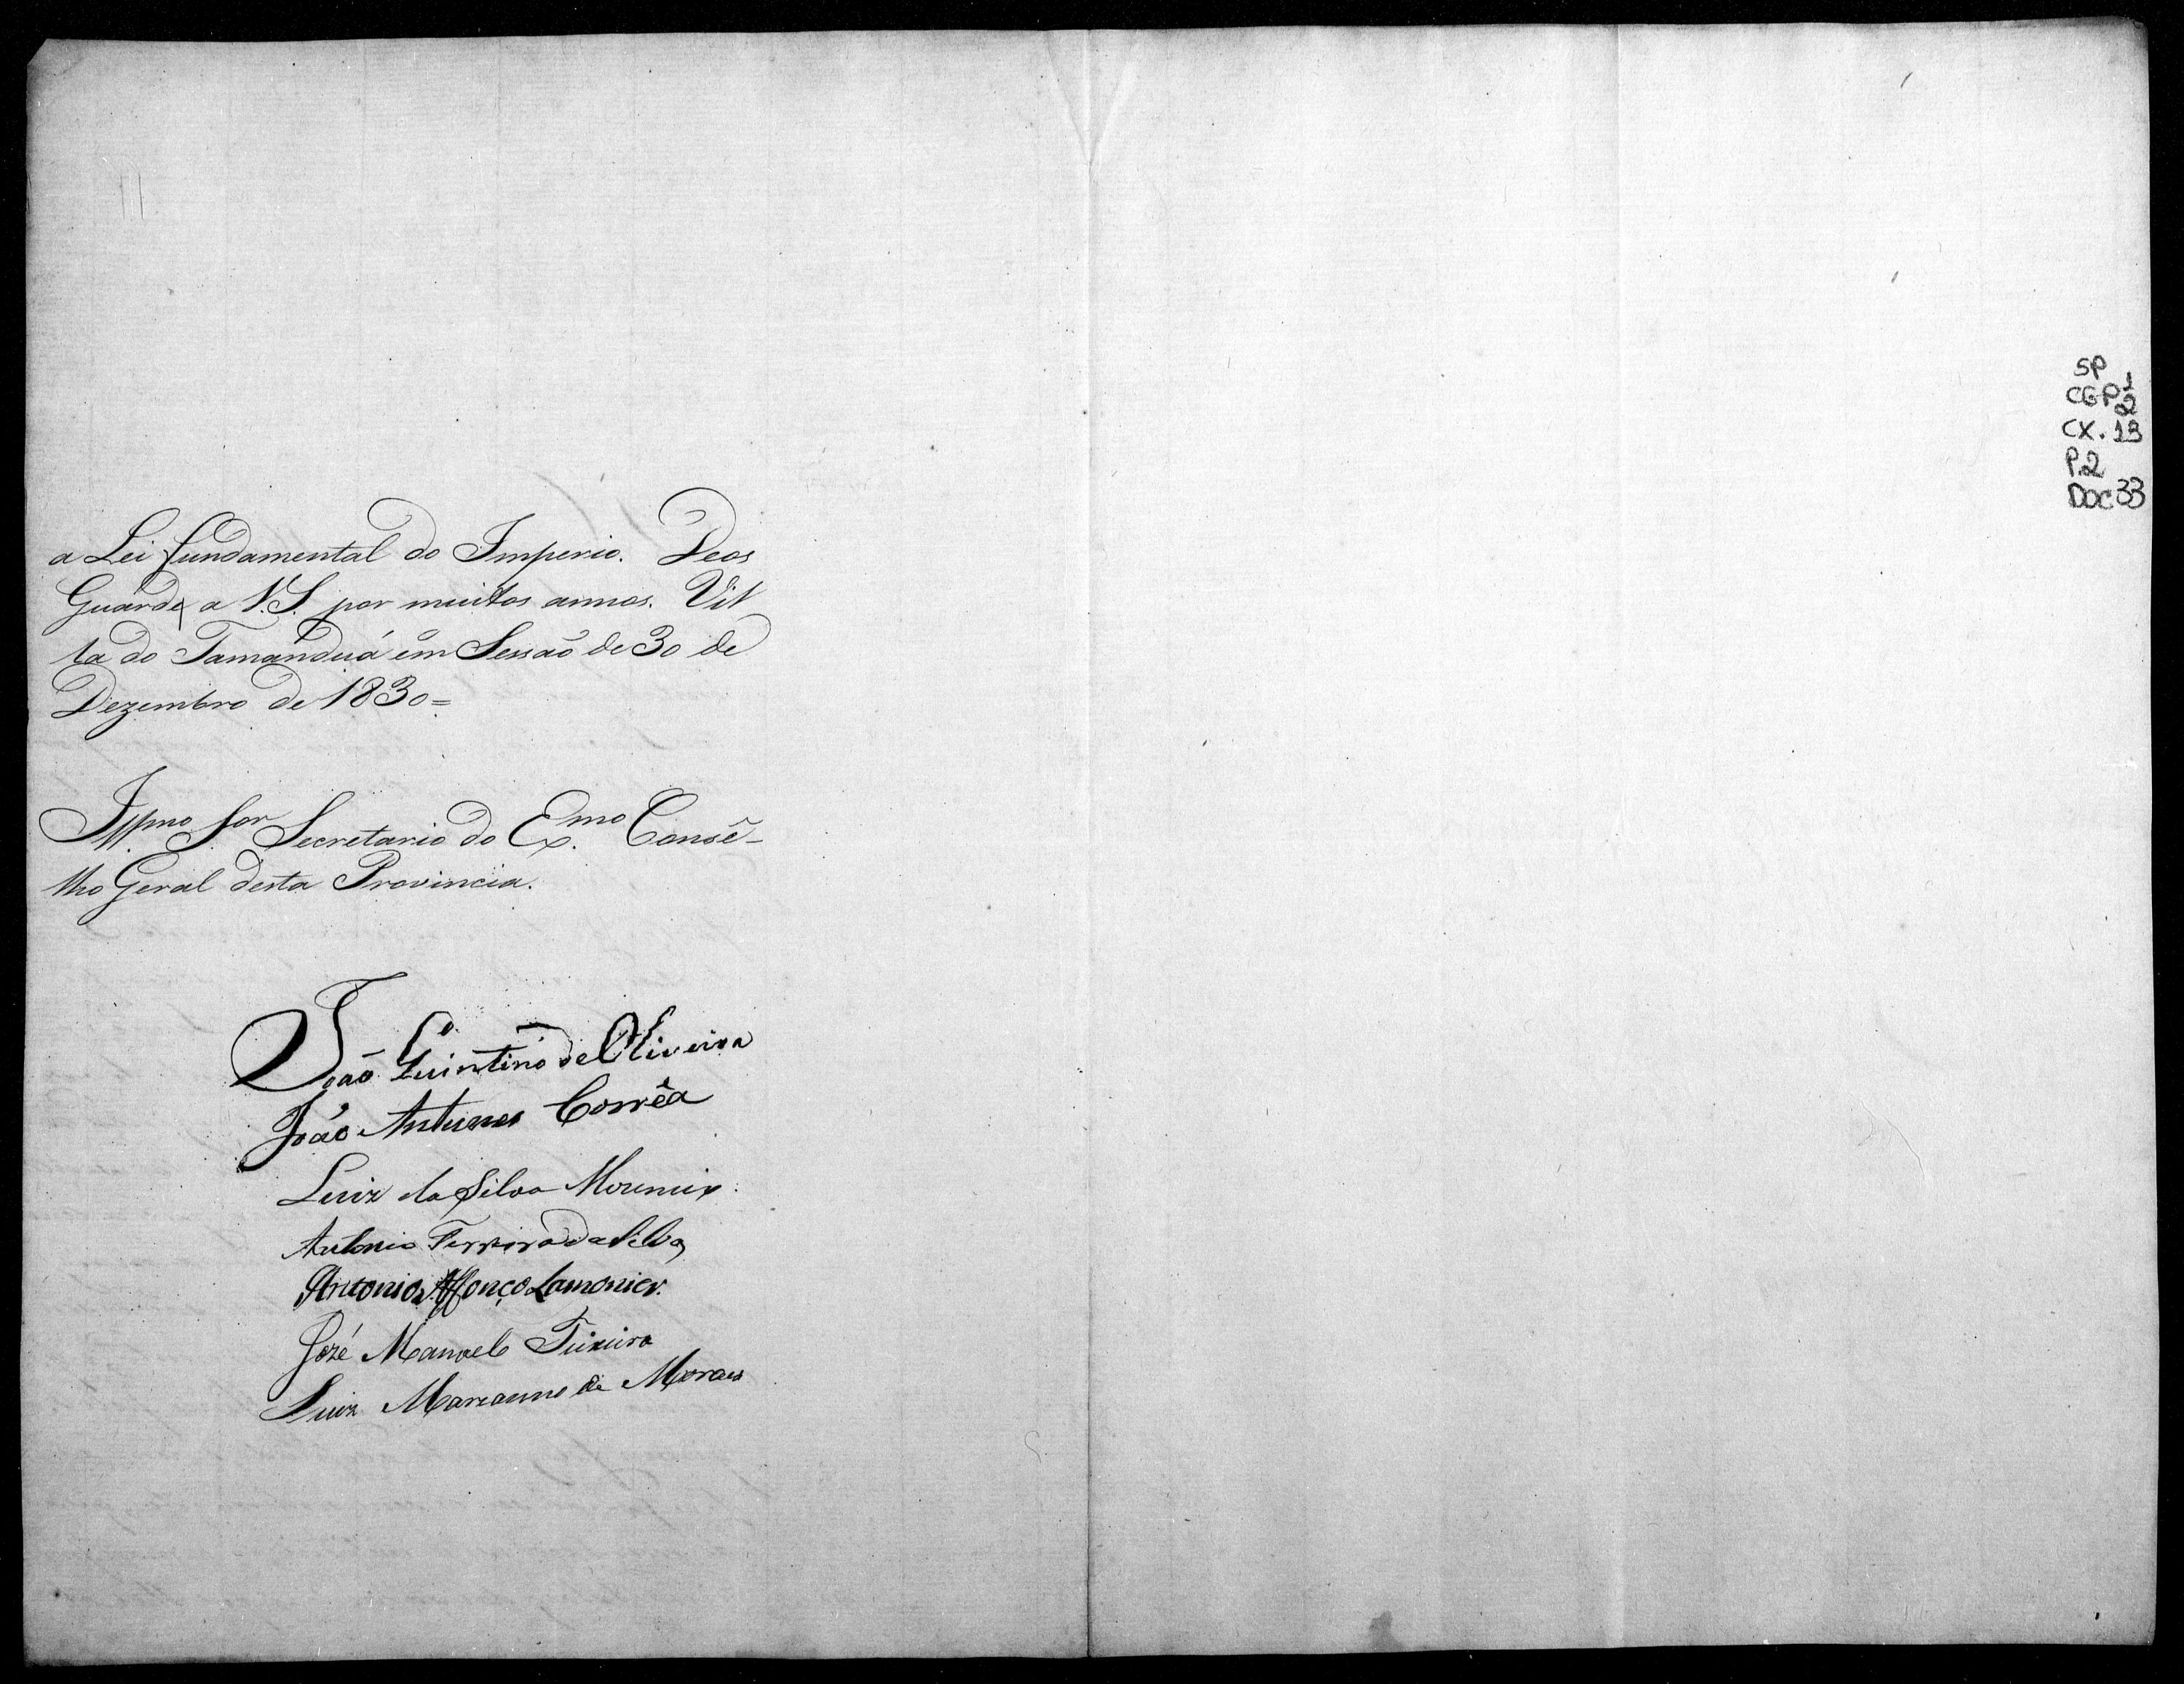 a Lei fundamental do Imperio. Deos
Guarde a V.S. por muitos annos. Vil
la do Tamanduá em Sessaõ de 30 de
Dezembro de 1830=
Illmo Sor Secretario do Ex.mo Consê-
lho Geral desta Provincia.
Joaõ Quintino de Oliveira
João Antunes Corrêa
Luiz da Silva
Antonio Ferreira da Silva
Antonio Affonço Lamonier.
Jozé Manoel Teixeira
Luiz Marianno de Moraes
SP
CGP 1
2
CX. 13
P.2
DOC 33